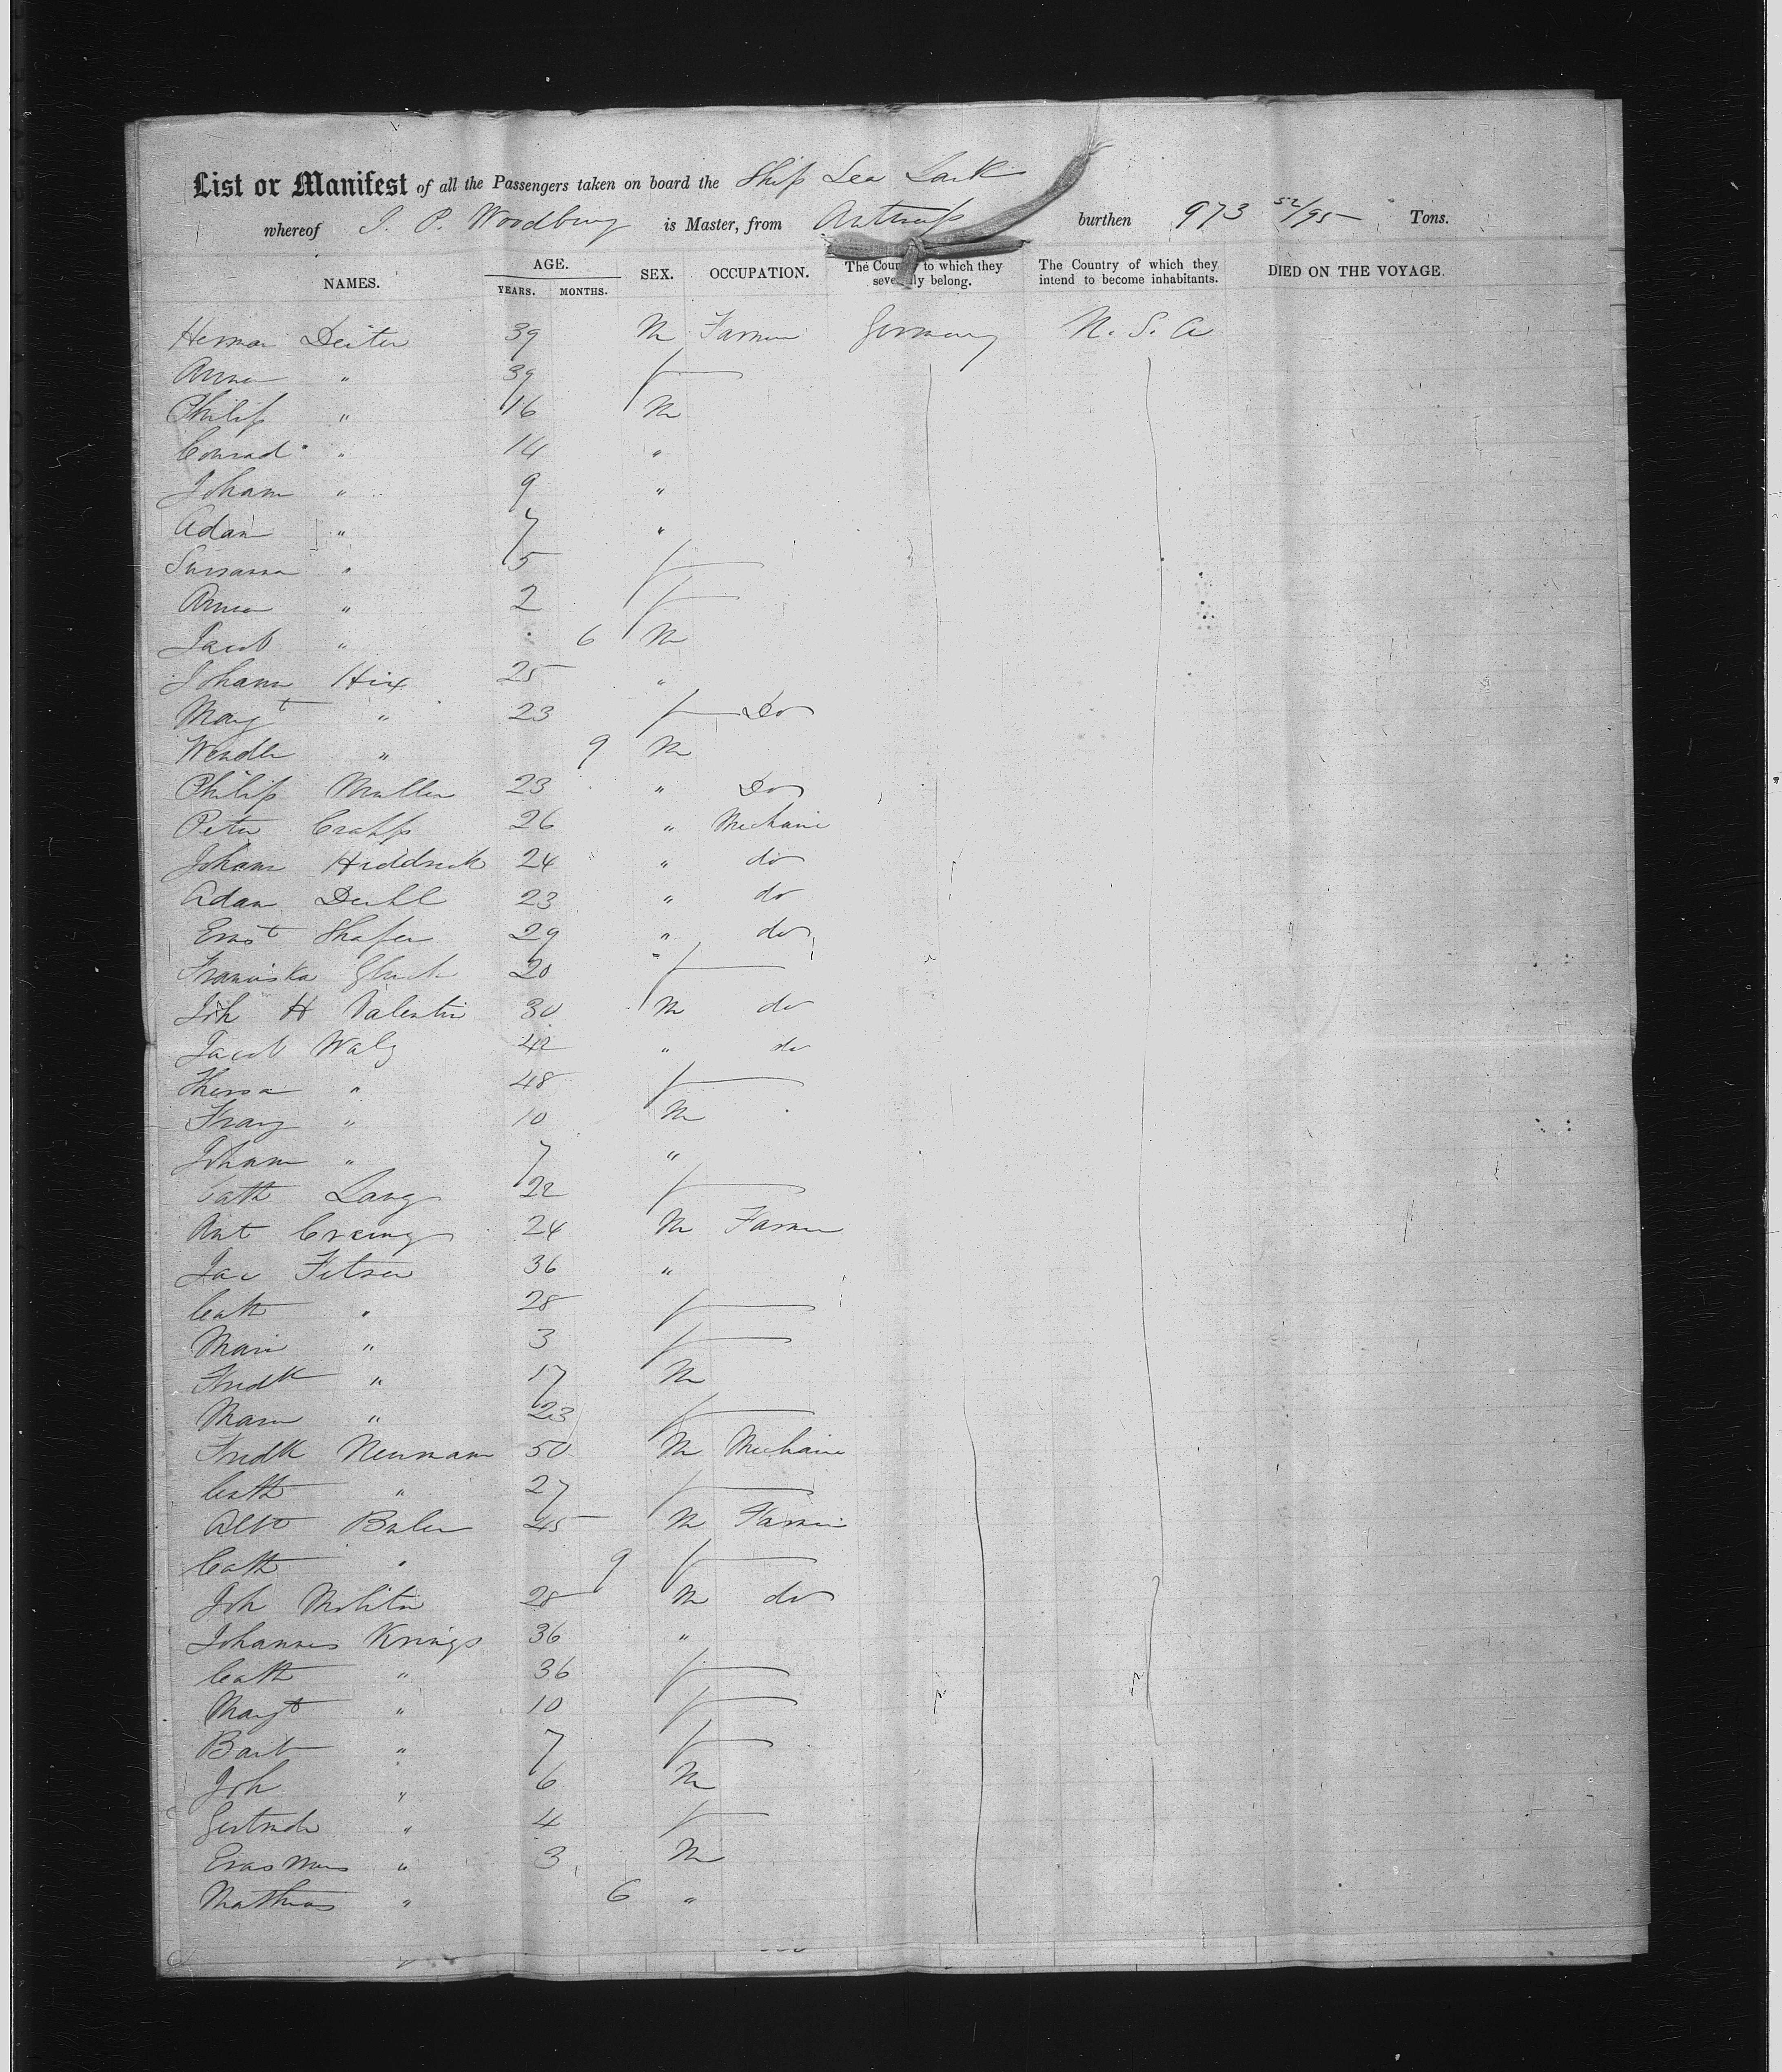 List or Manifest of all the Passengers taken on board the Ship Sea Lark
whereof J. P. Woodbury is Master, from Antwerp burthen 973 52/95 Tons.
NAMES. AGE. YEARS. MONTHS. SEX. OCCUPATION. The Country to which they severally belong. The Country of which they intend to become inhabitants. DIED ON THE VOYAGE.
Herman Deiter 39 M Farmer Germany U. S. A
Anna " 39 f
Philip " 16 M
Conrad " 14 "
Johann " 9 "
Adam " 7 "
Susanna " 5 f
Anna " 2 f
Jacob " 6 M
Johann Hix 25 "
Margt " 23 f Do
Wendle " 9 M
Philip Muller 23 " Do
Peter 26 " Mechanic
Johann 24 " do
Adam Diehl 23 " do
Ernst Shafer 29 " do
Franziska Gluck 20 f
Joh H Valentin 30 M do
Jacob Walz 42 " do
Theresa " 48 f
Franz " 10 M
Johann " 7 "
Cath Lang 22 f
Ant 24 M Farmer
Jac Fetzer 36 "
Cath " 28 f
Mari " 3 f
Fredk " 17 M
Marn " 23 f
Fredk Neumann 50 M Mechanic
Cath " 27 f
Albt 25 M Farmer
Cath " 9 f
Joh Molitor 28 M do
Johannes Krings 36 "
Cath " 36 f
Margt " 10 f
Barb " 7 f
Joh " 6 M
Gertrude " 4 f
Erasmus " 3 M
Mathias " 6 "